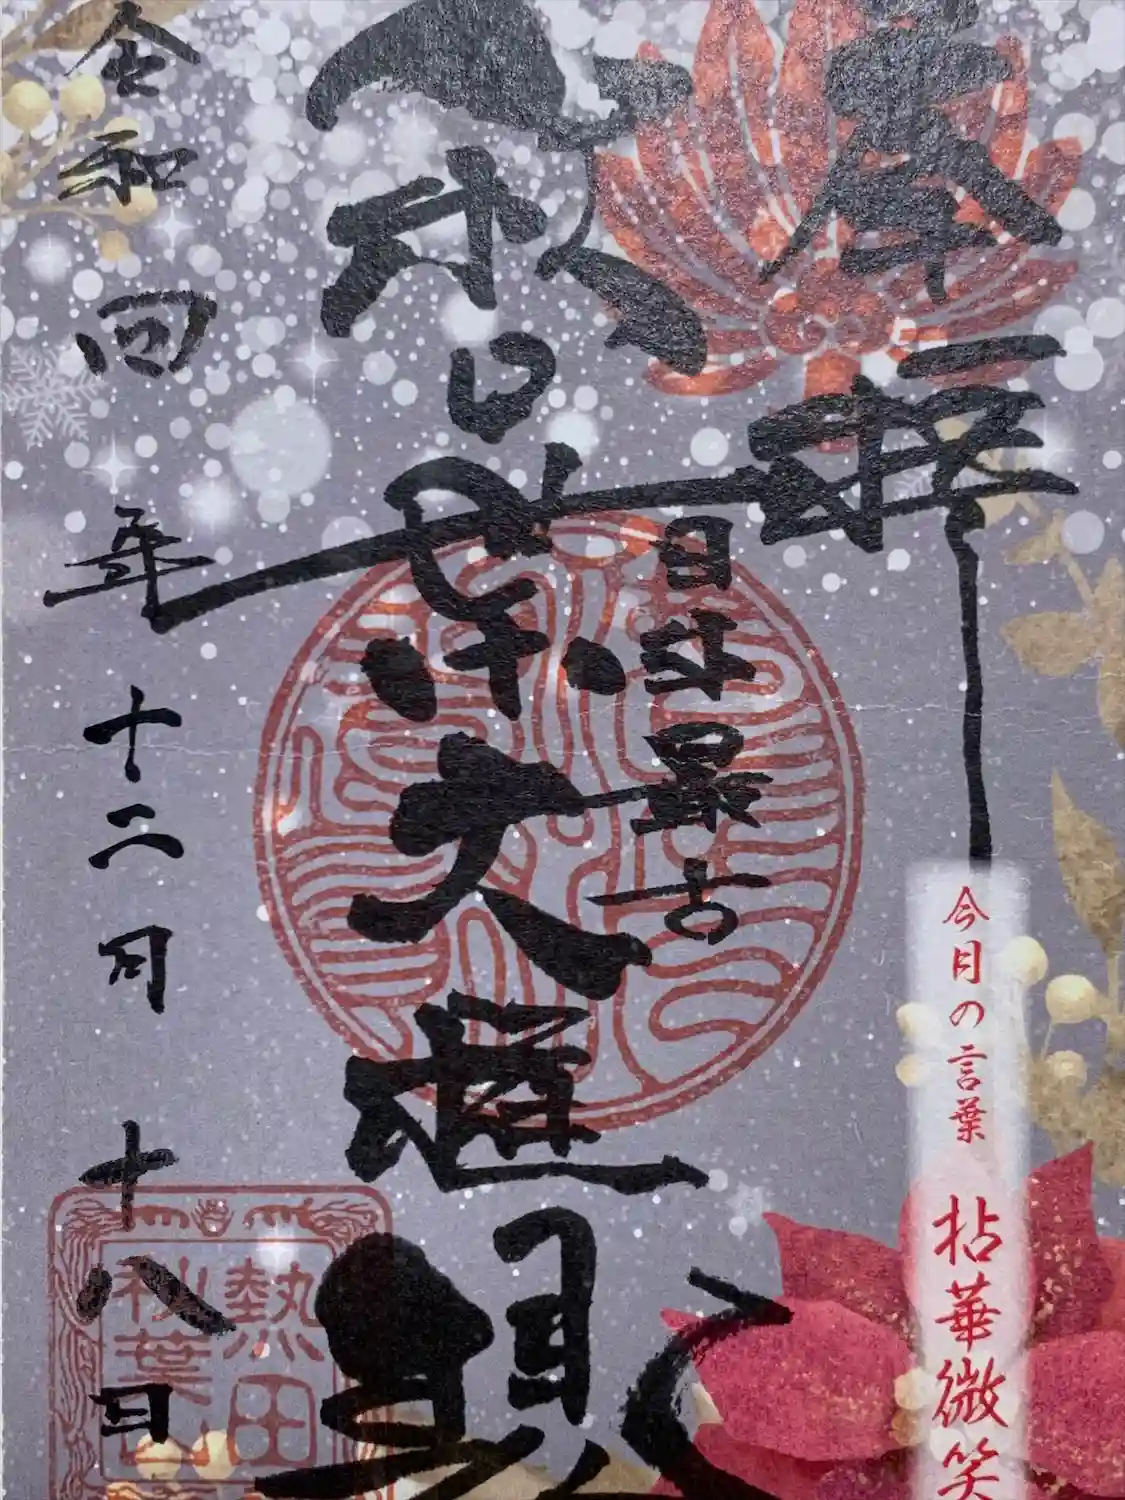 奉拝
今月の言葉 拈華微笑
日本最古
秋葉大権現
令和四年十二月十八日
熱田
秋葉山